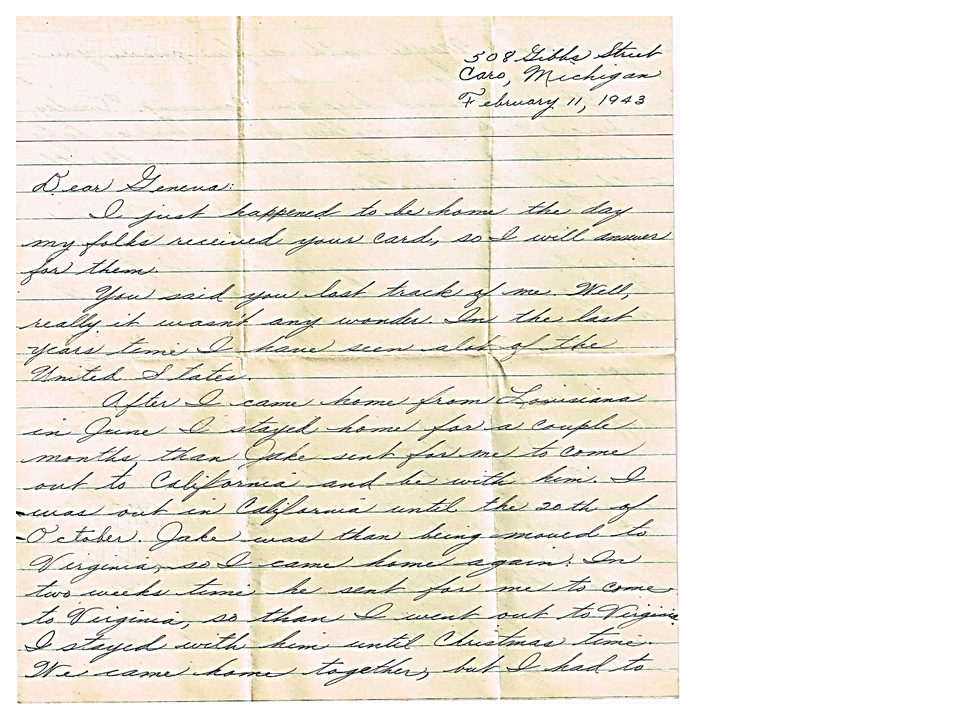 508 Gibbs Street
Caro, Michigan
February 11, 1943
Dear Geneva:
I just happened to be home the day
my folks received your card, so I will answer
for them.
You said you lost track of me. Well,
really it wasn't any wonder. In the last
years time I have seen alot of the
United States.
After I came home from Louisiana
in June I stayed home for a couple
months, than Jake sent for me to come
out to California and be with him. I
was out in California until the 20th of
October. Jake was than being moved to
Virginia, so I came home again. In
two weeks time he sent for me to come
to Virginia, so than I went out to Virginia
I stayed with him until Christmas time.
We came home together, but I had to